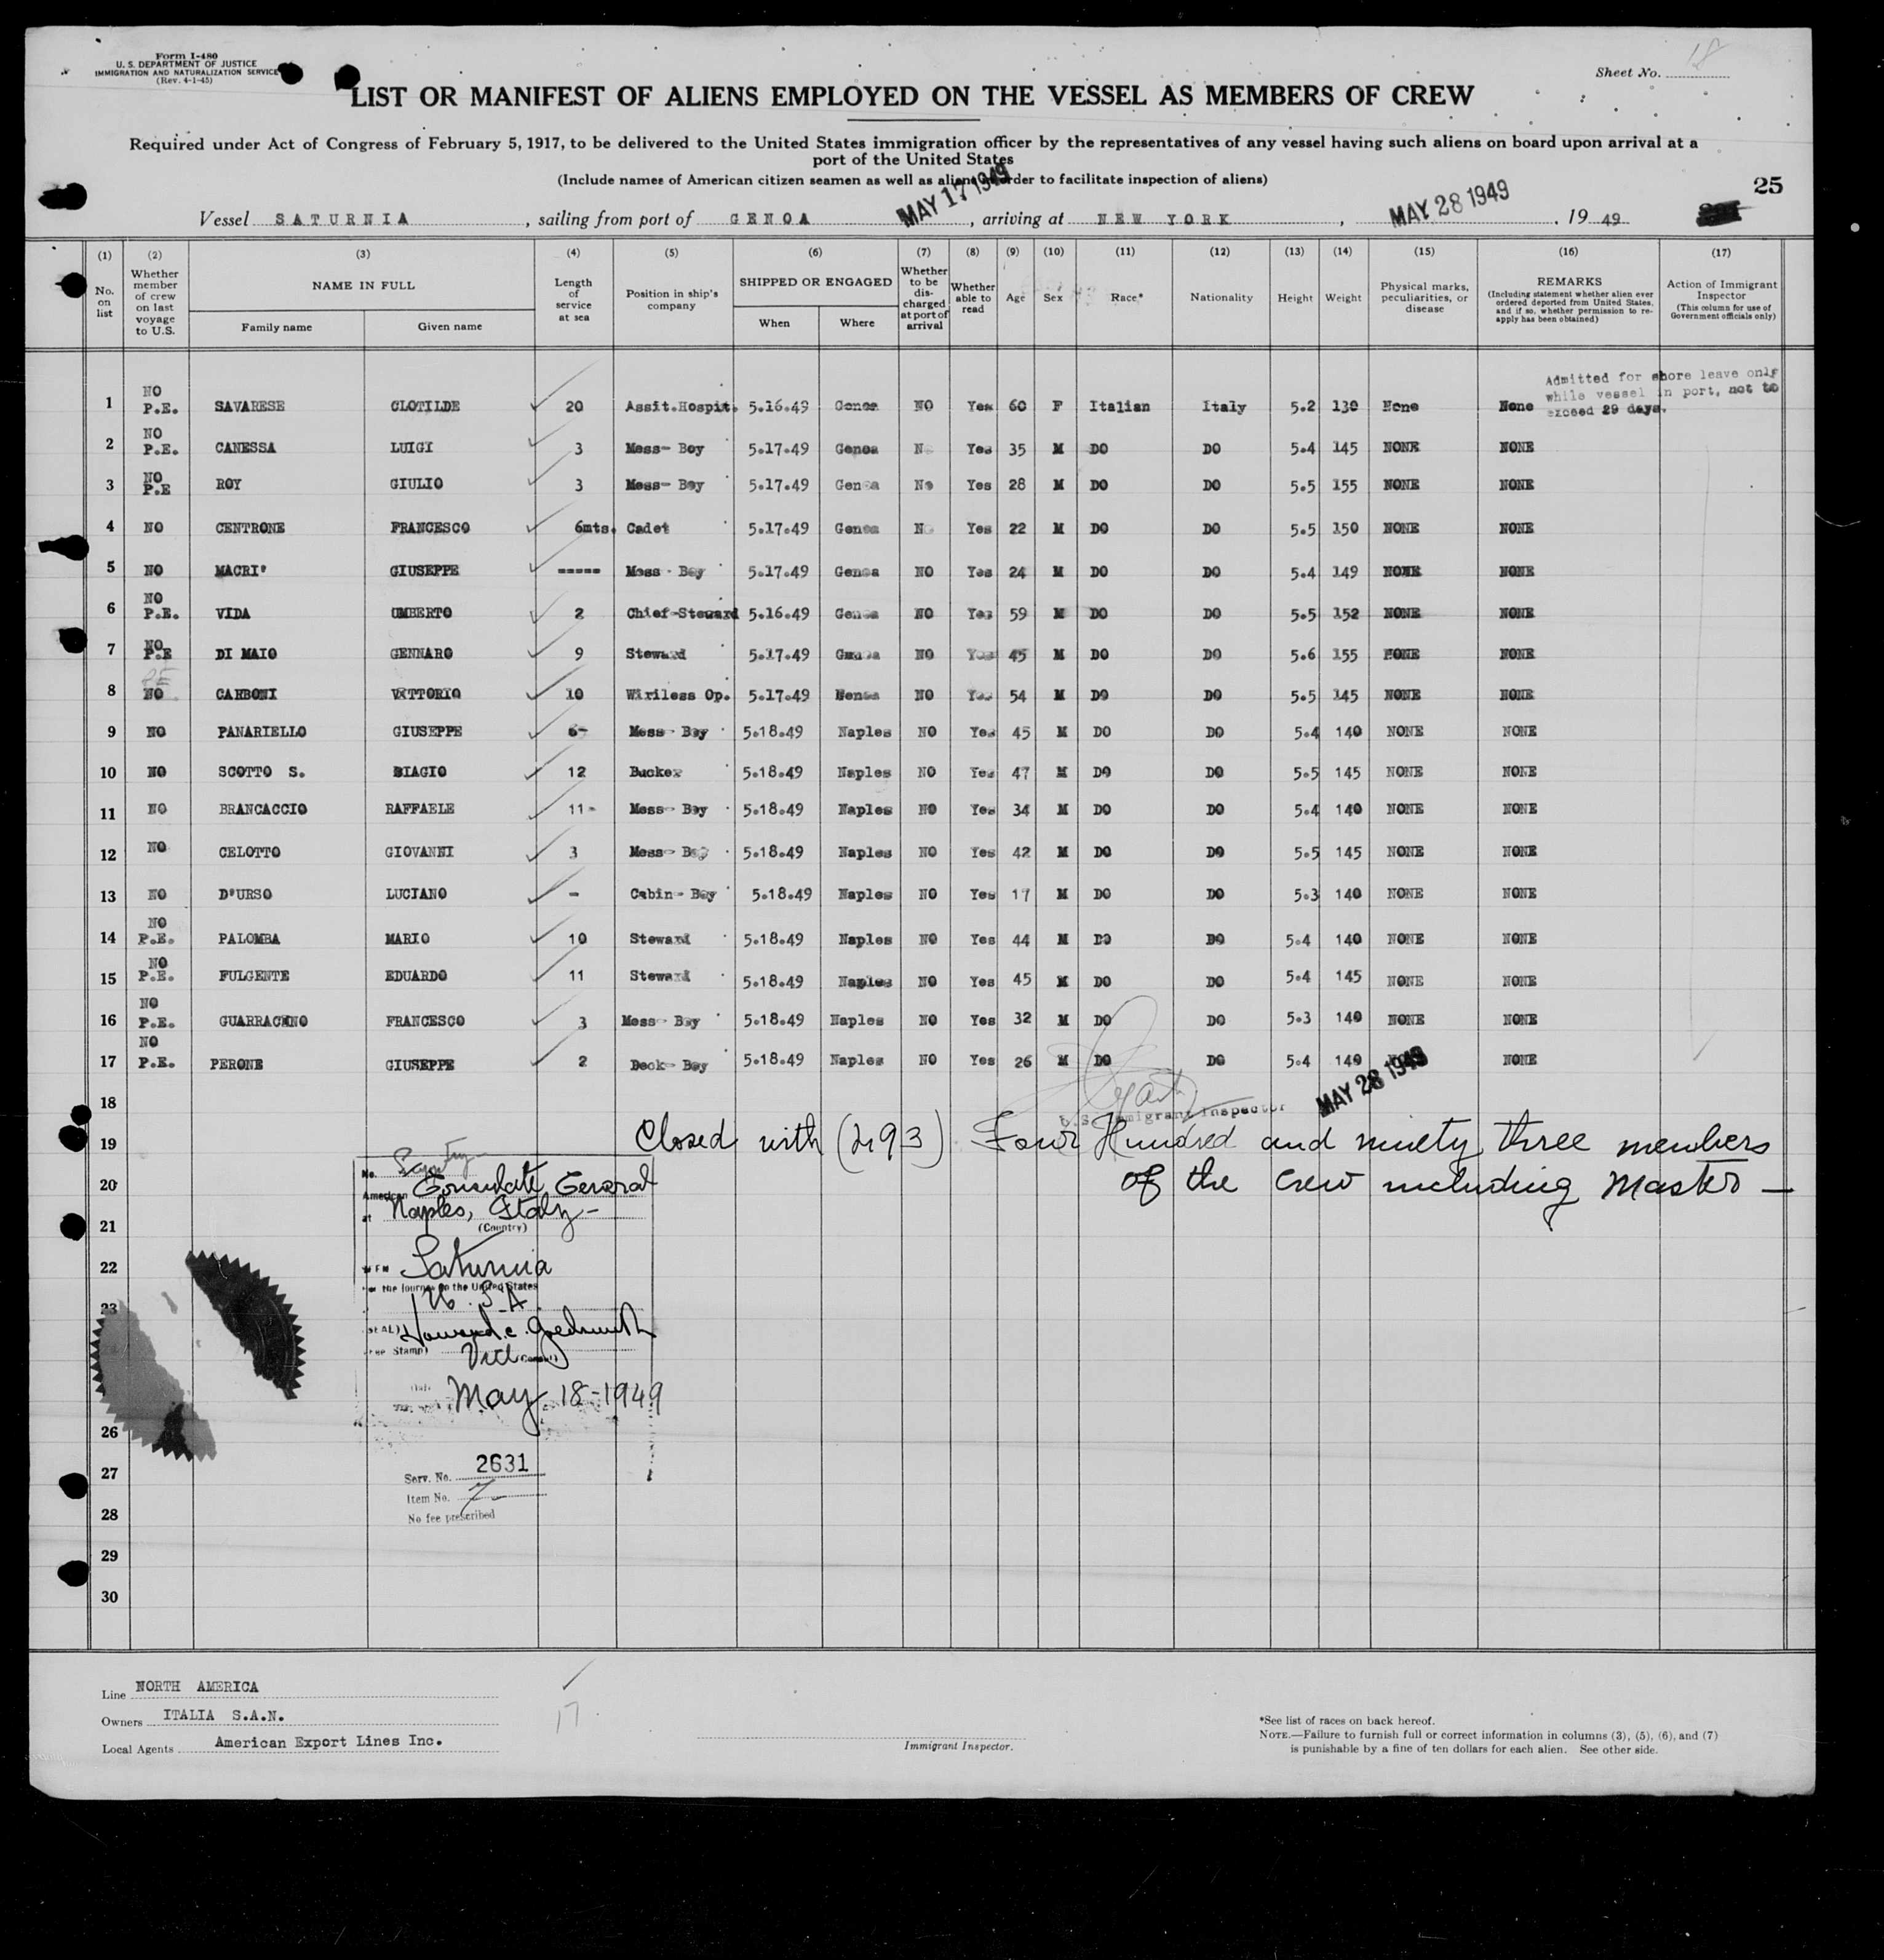 Form I-480
U. S. DEPARTMENT OF JUSTICE
IMMIGRATION AND NATURALIZATION SERVICE
(Rev. 4-1-45)
18
Sheet No.
LIST OR MANIFEST OF ALIENS EMPLOYED ON THE VESSEL AS MEMBERS OF CREW
Required under Act of Congress of February 5, 1917, to be delivered to the United States immigration officer by the representatives of any vessel having such aliens on board upon arrival at a
port of the United States
(Include names of American citizen seamen as well as aliens order to facilitate inspection of aliens)
25
Vessel SATURNIA, sailing from port of GENOA MAY 17 1949, arriving at NEW YORK, MAY 28 1949, 19 49
(1) No. on list
(2) Whether member of crew on last voyage to U.S.
(3) NAME IN FULL Family name Given name
(4) Length of service at sea
(5) Position in ship's company
(6) SHIPPED OR ENGAGED When Where
(7) Whether to be discharged at port of arrival
(8) Whether able to read
(9) Age
(10) Sex
(11) Race*
(12) Nationality
(13) Height
(14) Weight
(15) Physical marks, peculiarities, or disease
(16) REMARKS (Including statement whether alien ever ordered deported from United States, and if so, whether permission to re-apply has been obtained)
(17) Action of Immigrant Inspector (This column for use of Government officials only)
Admitted for shore leave only
while vessel in port, not to
exceed 29 days.
1 NO P.E. SAVARESE CLOTILDE 20 Assit.Hospit. 5.16.49 Genoa NO Yes 60 F Italian Italy 5.2 130 None None
2 NO P.E. CANESSA LUIGI 3 Mess- Boy 5.17.49 Genoa No Yes 35 M DO DO 5.4 145 NONE NONE
3 NO P.E ROY GIULIO 3 Mess- Boy 5.17.49 Genoa No Yes 28 M DO DO 5.5 155 NONE NONE
4 NO CENTRONE FRANCESCO 6mts. Cadet 5.17.49 Genoa No Yes 22 M DO DO 5.5 150 NONE NONE
5 NO MACRI' GIUSEPPE ----- Mess - Boy 5.17.49 Genoa NO Yes 24 M DO DO 5.4 149 NONE NONE
6 NO P.E. VIDA UMBERTO 2 Chief-Steward 5.16.49 Genoa NO Yes 59 M DO DO 5.5 152 NONE NONE
7 NO P.E DI MAIO GENNARO 9 Steward 5.17.49 Genoa NO Yes 45 M DO DO 5.6 155 NONE NONE
8 PE NO CARBONI VITTORIO 10 Wiriless Op. 5.17.49 Nenoa NO Yes 54 M DO DO 5.5 145 NONE NONE
9 NO PANARIELLO GIUSEPPE 6- Mess- Boy 5.18.49 Naples NO Yes 45 M DO DO 5.4 140 NONE NONE
10 NO SCOTTO S. BIAGIO 12 Bucker 5.18.49 Naples NO Yes 47 M DO DO 5.5 145 NONE NONE
11 NO BRANCACCIO RAFFAELE 11- Mess- Boy 5.18.49 Naples NO Yes 34 M DO DO 5.4 140 NONE NONE
12 NO CELOTTO GIOVANNI 3 Mess- Boy 5.18.49 Naples NO Yes 42 M DO DO 5.5 145 NONE NONE
13 NO D'URSO LUCIANO - Cabin- Boy 5.18.49 Naples NO Yes 17 M DO DO 5.3 140 NONE NONE
14 NO P.E. PALOMBA MARIO 10 Steward 5.18.49 Naples NO Yes 44 M DO DO 5.4 140 NONE NONE
15 NO P.E. FULGENTE EDUARDO 11 Steward 5.18.49 Naples NO Yes 45 M DO DO 5.4 145 NONE NONE
16 NO P.E. GUARRACINO FRANCESCO 3 Mess- Boy 5.18.49 Naples NO Yes 32 M DO DO 5.3 140 NONE NONE
17 NO P.E. PERONE GIUSEPPE 2 Deck- Boy 5.18.49 Naples NO Yes 26 M DO DO 5.4 140 NONE
MAY 28 1949
18
U.S. Immigrant Inspector
19 Closed with (493) Four Hundred and ninety three members
20 of the crew including Master —
21
22
23
26
27
28
29
30
No.
American Consulate General
at Naples, Italy-
(Country)
Saturnia
the journey to the United States
U.S.A.
(SEAL) Howard C. Goldsmith
Stamp) Vice (Consul)
May 18-1949
Serv. No. 2631
Item No. 7
No fee prescribed
Line NORTH AMERICA
Owners ITALIA S.A.N.
Local Agents American Export Lines Inc.
17
Immigrant Inspector.
*See list of races on back hereof.
NOTE.—Failure to furnish full or correct information in columns (3), (5), (6), and (7)
is punishable by a fine of ten dollars for each alien. See other side.